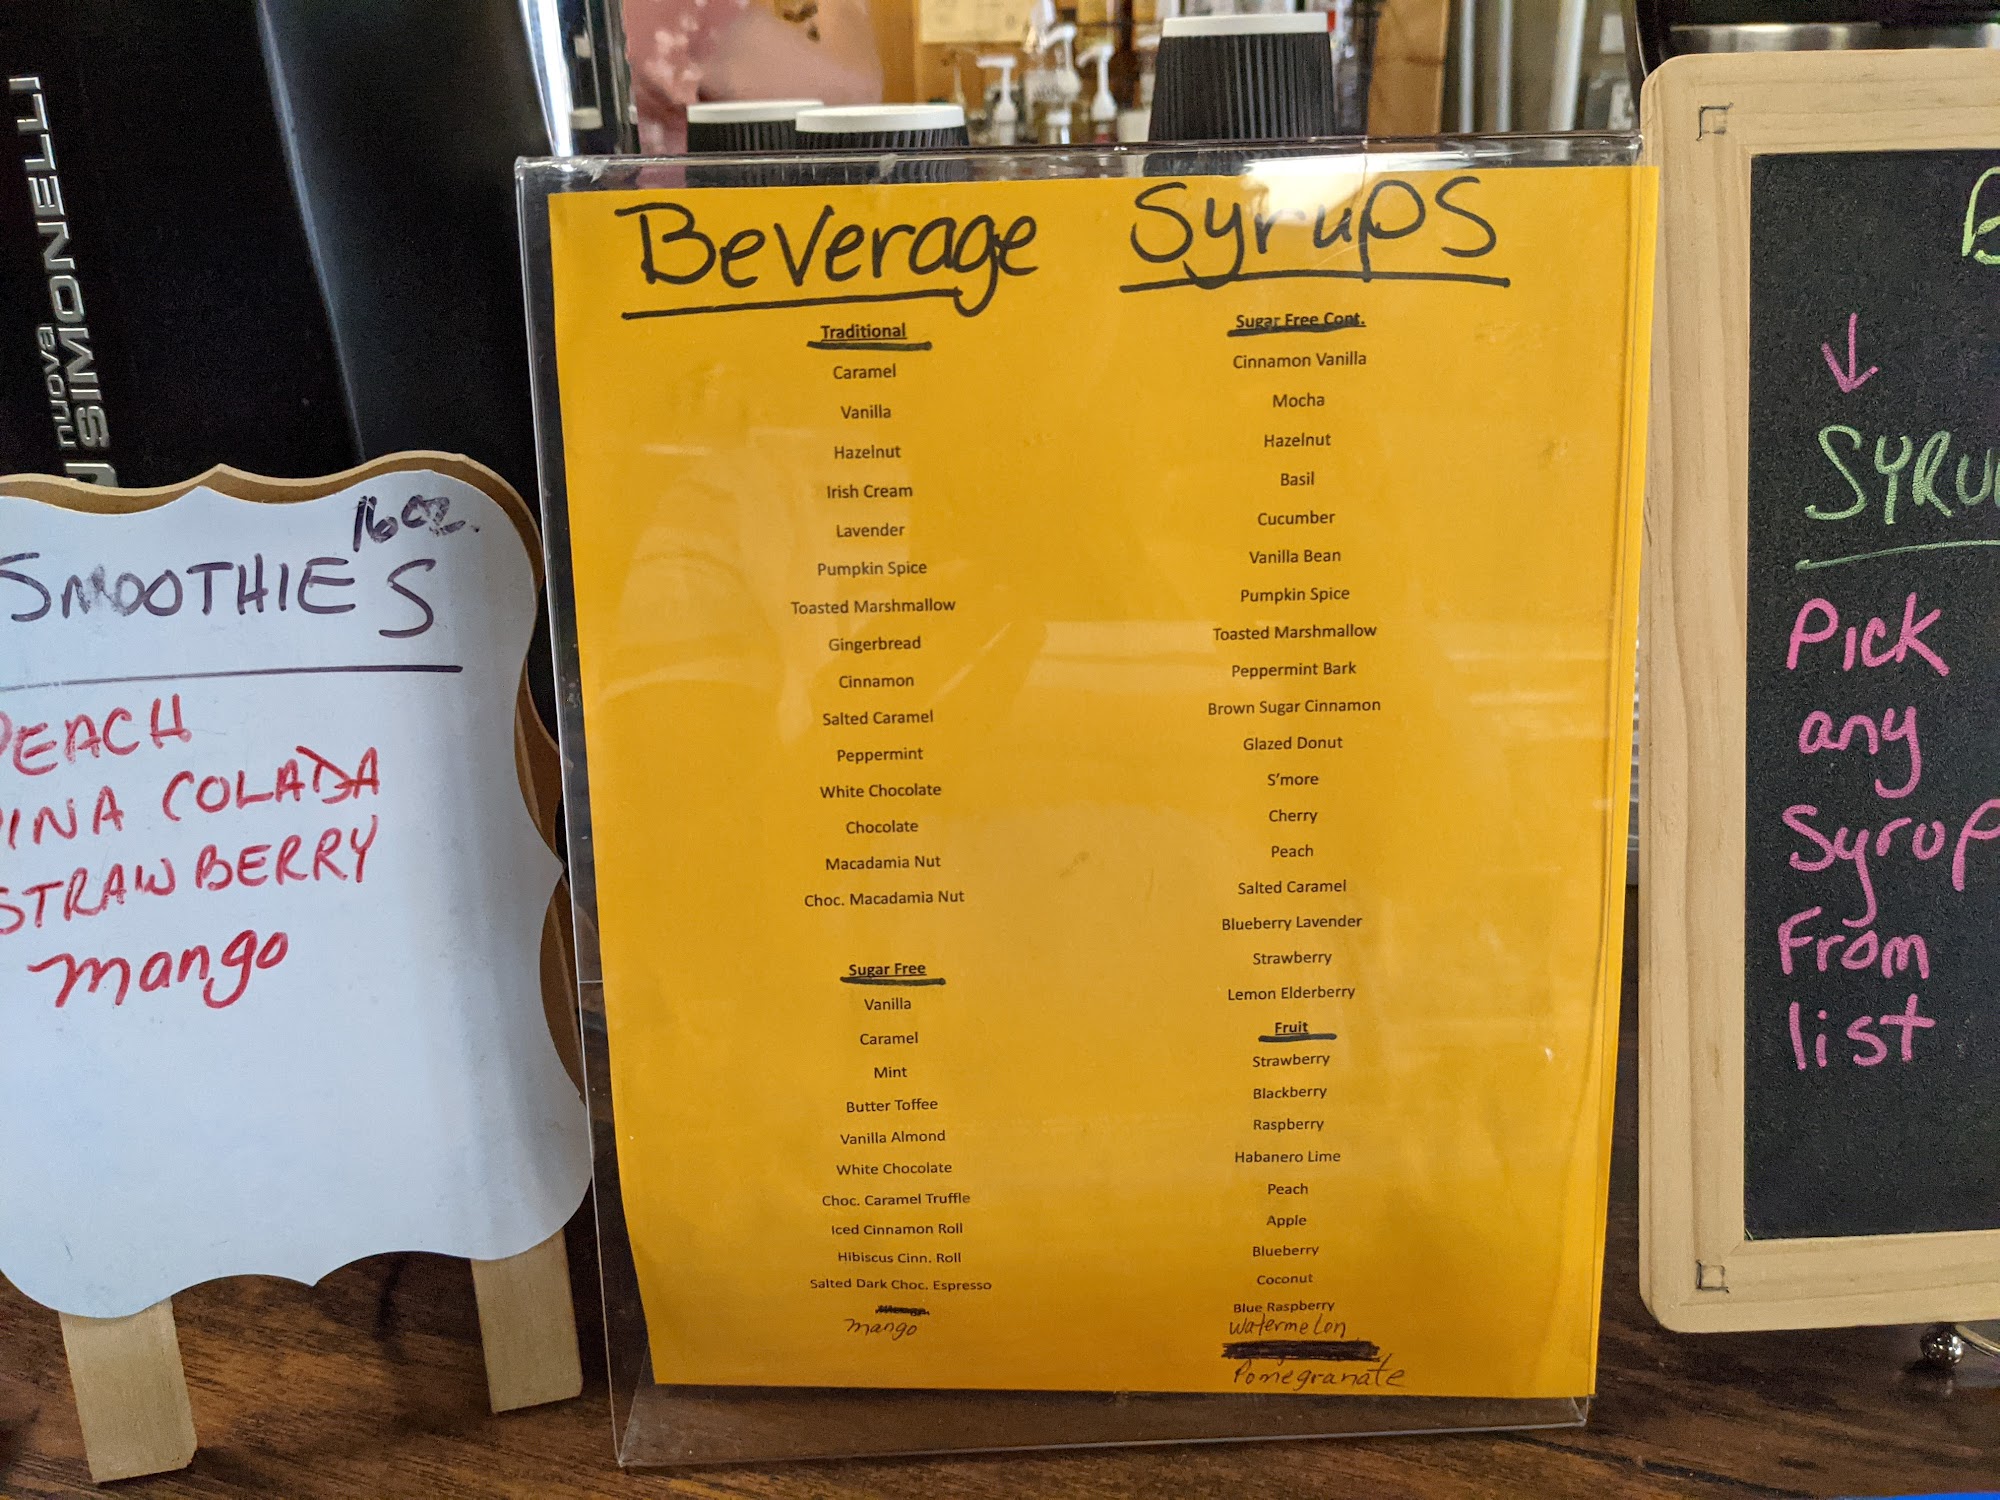 NUOVA SIMONELLI
16 oz.
SMOOTHIES
PEACH
PINA COLADA
STRAWBERRY
mango
Beverage Syrups
Traditional
Caramel
Vanilla
Hazelnut
Irish Cream
Lavender
Pumpkin Spice
Toasted Marshmallow
Gingerbread
Cinnamon
Salted Caramel
Peppermint
White Chocolate
Chocolate
Macadamia Nut
Choc. Macadamia Nut
Sugar Free
Vanilla
Caramel
Mint
Butter Toffee
Vanilla Almond
White Chocolate
Choc. Caramel Truffle
Iced Cinnamon Roll
Hibiscus Cinn. Roll
Salted Dark Choc. Espresso
mango
Sugar Free Cont.
Cinnamon Vanilla
Mocha
Hazelnut
Basil
Cucumber
Vanilla Bean
Pumpkin Spice
Toasted Marshmallow
Peppermint Bark
Brown Sugar Cinnamon
Glazed Donut
S'more
Cherry
Peach
Salted Caramel
Blueberry Lavender
Strawberry
Lemon Elderberry
Fruit
Strawberry
Blackberry
Raspberry
Habanero Lime
Peach
Apple
Blueberry
Coconut
Blue Raspberry
Watermelon
Pomegranate
SYRU
Pick
any
Syrup
From
list